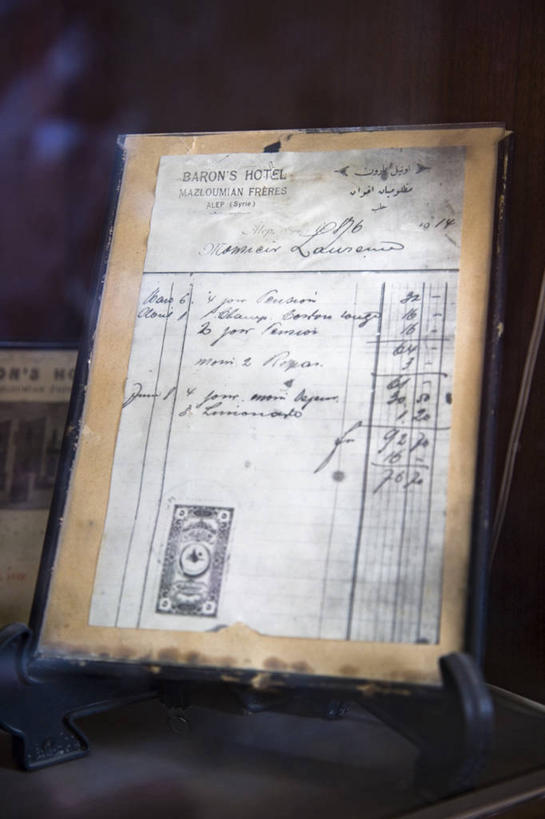 BARON'S HOTEL
MAZLOUMIAN FRÈRES
ALEP (Syrie)
اوتيل بارون
مظلوميان اخوان
حلب
Alep, 1914
Monsieur Laurence
4 jour Pension 32 -
1 Champ. Cordon rouge 16 -
2 jour Pension 16 -
64 -
moin 2 Repas. 3 -
61 -
Juin 8 4 jour 30 50
8 Limonade 1 20
fr 92 70
16 -
76 70
ON'S HO